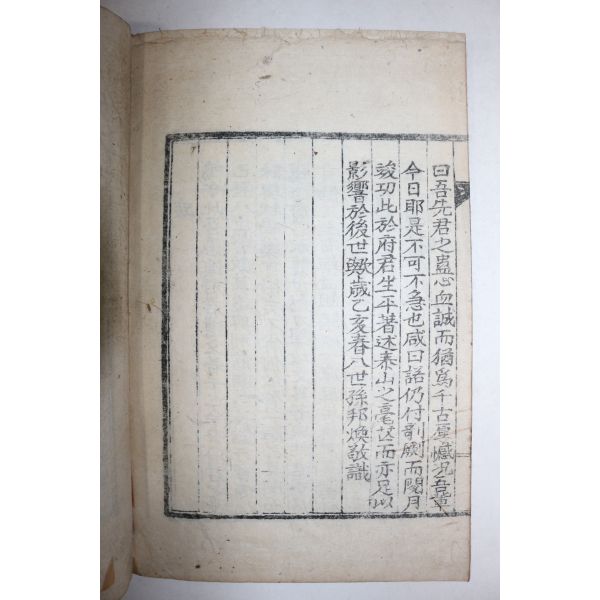 曰吾先君之蠱心血誠而猶爲千古憾况吾輩
今日耶是不可不急也咸曰諾仍付剞劂而閱月
竣功此於府君生平著述泰山之毫芒而亦足以
影響於後世歟歲乙亥春八世孫邦煥敬識